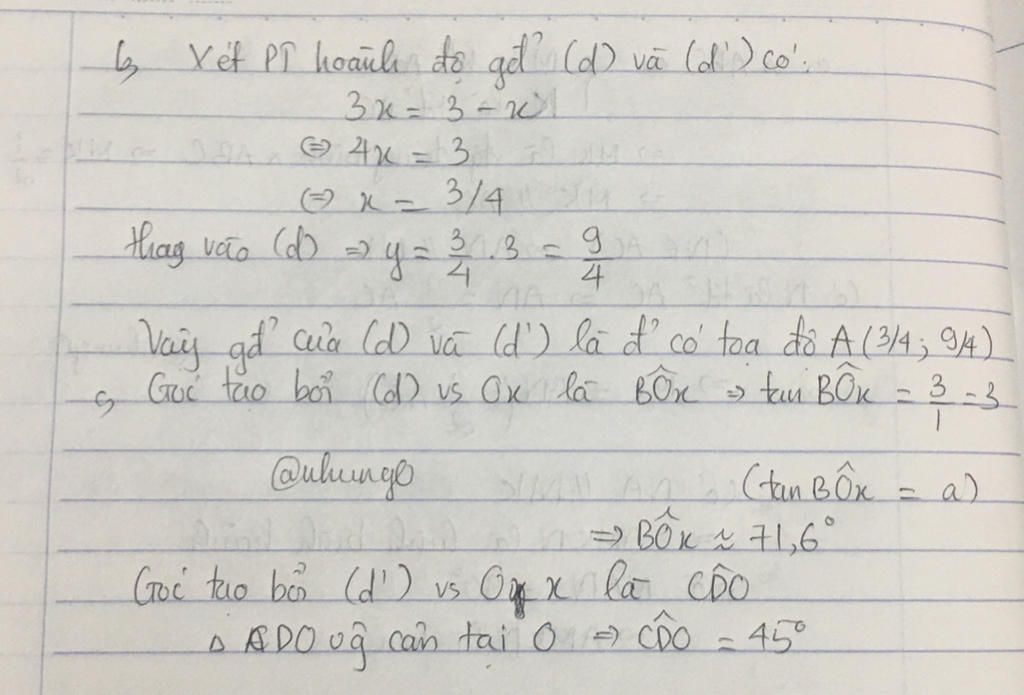 b, Xét PT hoành độ gđ' (d) và (d') có:
3x = 3 - x
⇔ 4x = 3
⇔ x = 3/4
thay vào (d) ⇒ y = 3/4 . 3 = 9/4
Vậy gđ' của (d) và (d') là đ' có toạ độ A (3/4; 9/4)
c, Góc tạo bởi (d) vs Ox là BÔx ⇒ tan BÔx = 3/1 = 3
@nhung0 (tan BÔx = a)
⇒ BÔx ≈ 71,6°
Góc tạo bởi (d') vs Ox là CD̂O
Δ CDO vg cân tại O ⇒ CD̂O = 45°